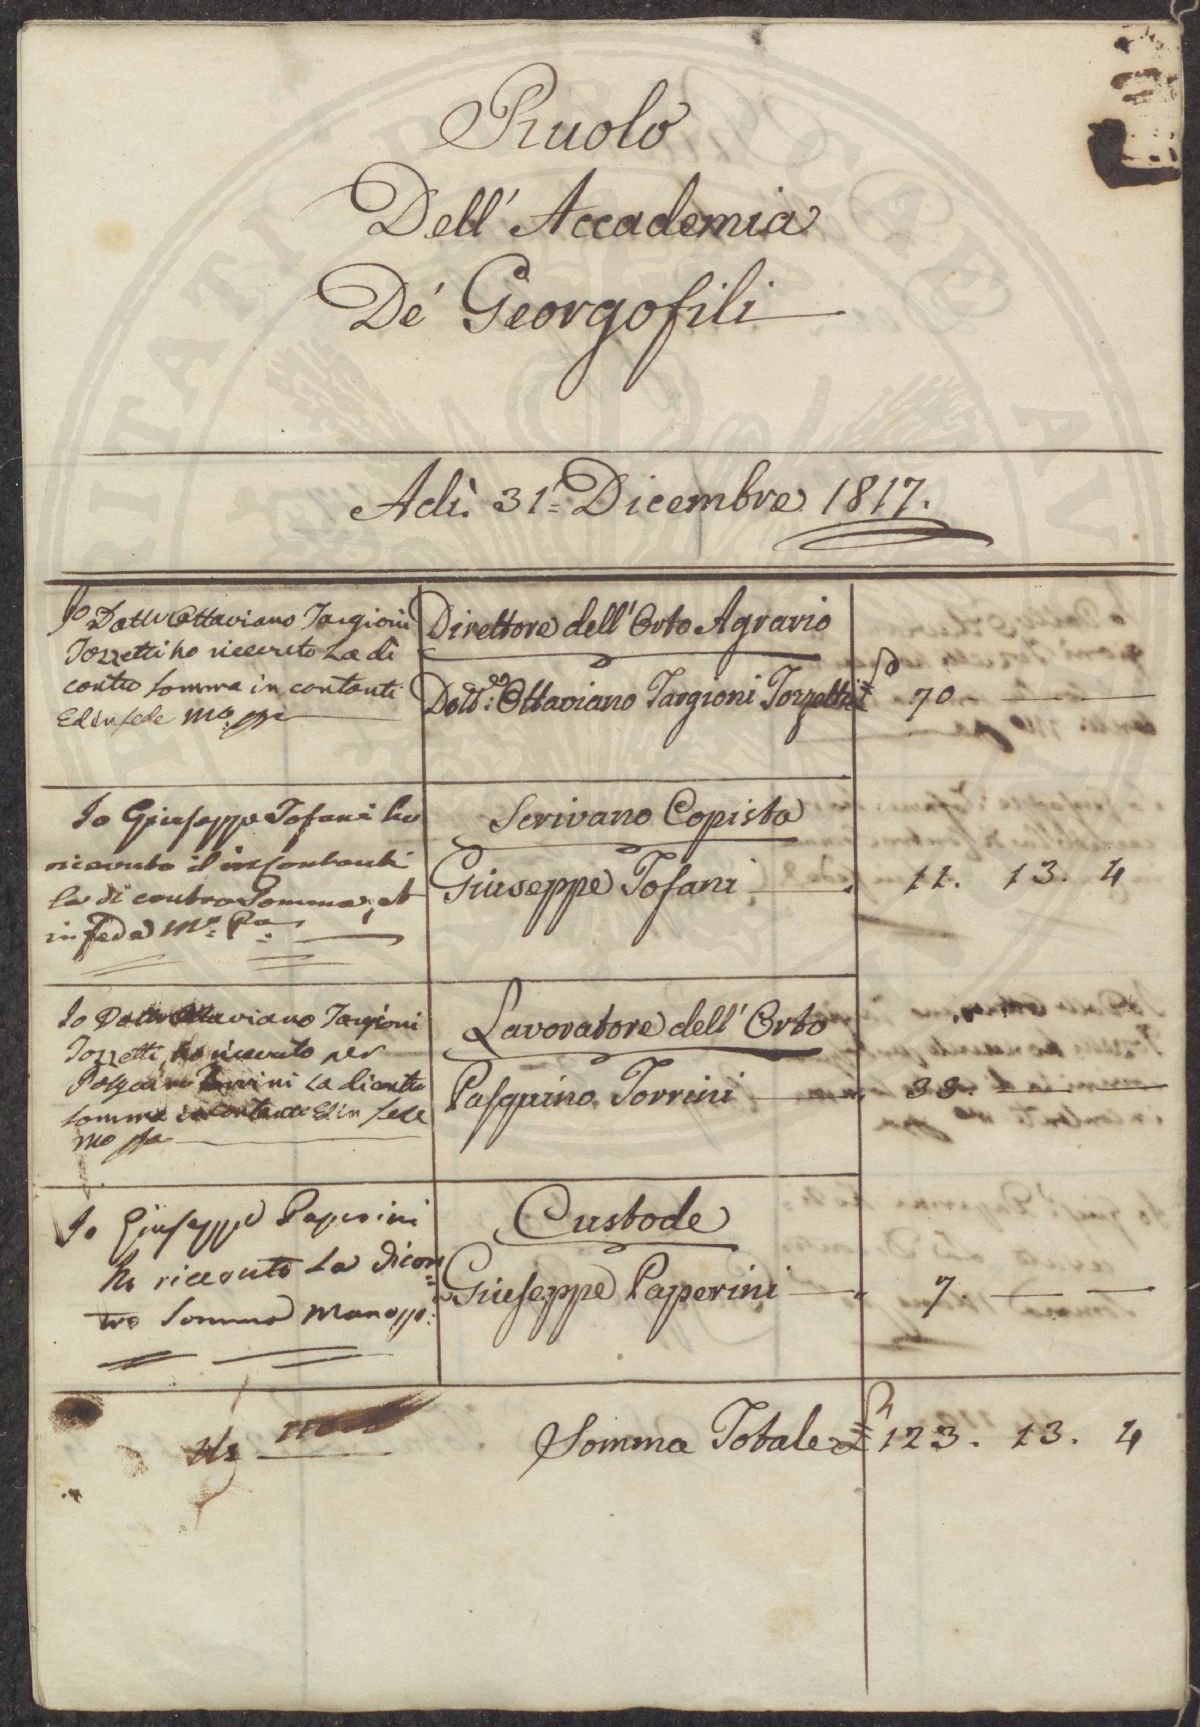 Ruolo
Dell' Accademia
De' Georgofili
Adì: 31= Dicembre 1817.
Io Dottr Ottaviano Targioni
Tozzetti ho ricevuto La di
contro somma in contanti
Ed in fede Mo. ppa
Direttore dell'Orto Agrario
Dott: Ottaviano Targioni Tozzetti £ 70
Io Giuseppe Tofani ho
ricevuto il in Contanti
la di contro Somma, et
in fede Mo. Pa
Scrivano Copista
Giuseppe Tofani 11. 13. 4
Io Dottr Ottaviano Targioni
Tozzetti ho ricevuto per
Pasquino Torrini La di contro
somma in contanti Ed in fede
mo ppa
Lavoratore dell' Orto
Pasquino Torrini 35.
Io Giuseppe Paperini
ho ricevuto La di con=
tro Somma Mano pp:
Custode
Giuseppe Paperini 7.
Somma Totale £ 123. 13. 4